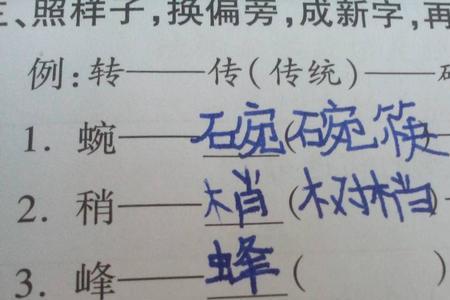 三、照样子,换偏旁,成新字,再
例:转——传(传统)——
1. 蜿——碗(碗筷
2. 稍——梢(树梢)
3. 峰——蜂( )